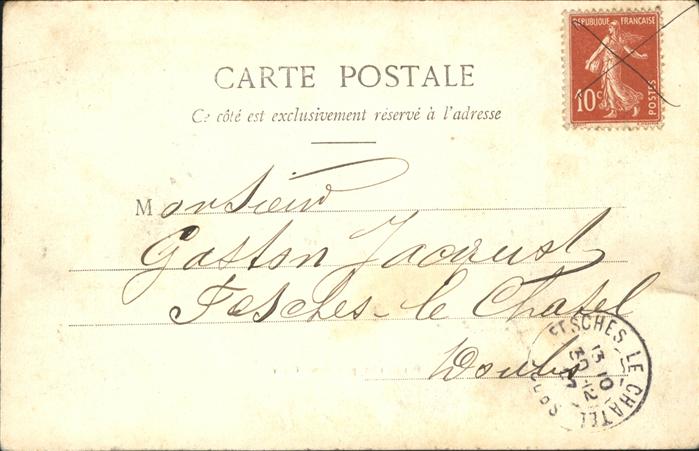 REPUBLIQUE FRANÇAISE
10c POSTES
CARTE POSTALE
Ce côté est exclusivement réservé à l'adresse
Monsieur
Gaston Jacquot
Fesches-le Chatel
Doubs
FESCHES LE CHATEL
13 10